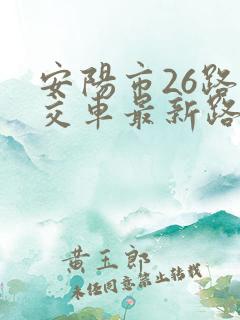 安陽市26路
交車最新路
黄玉郎
未经同意禁止转载